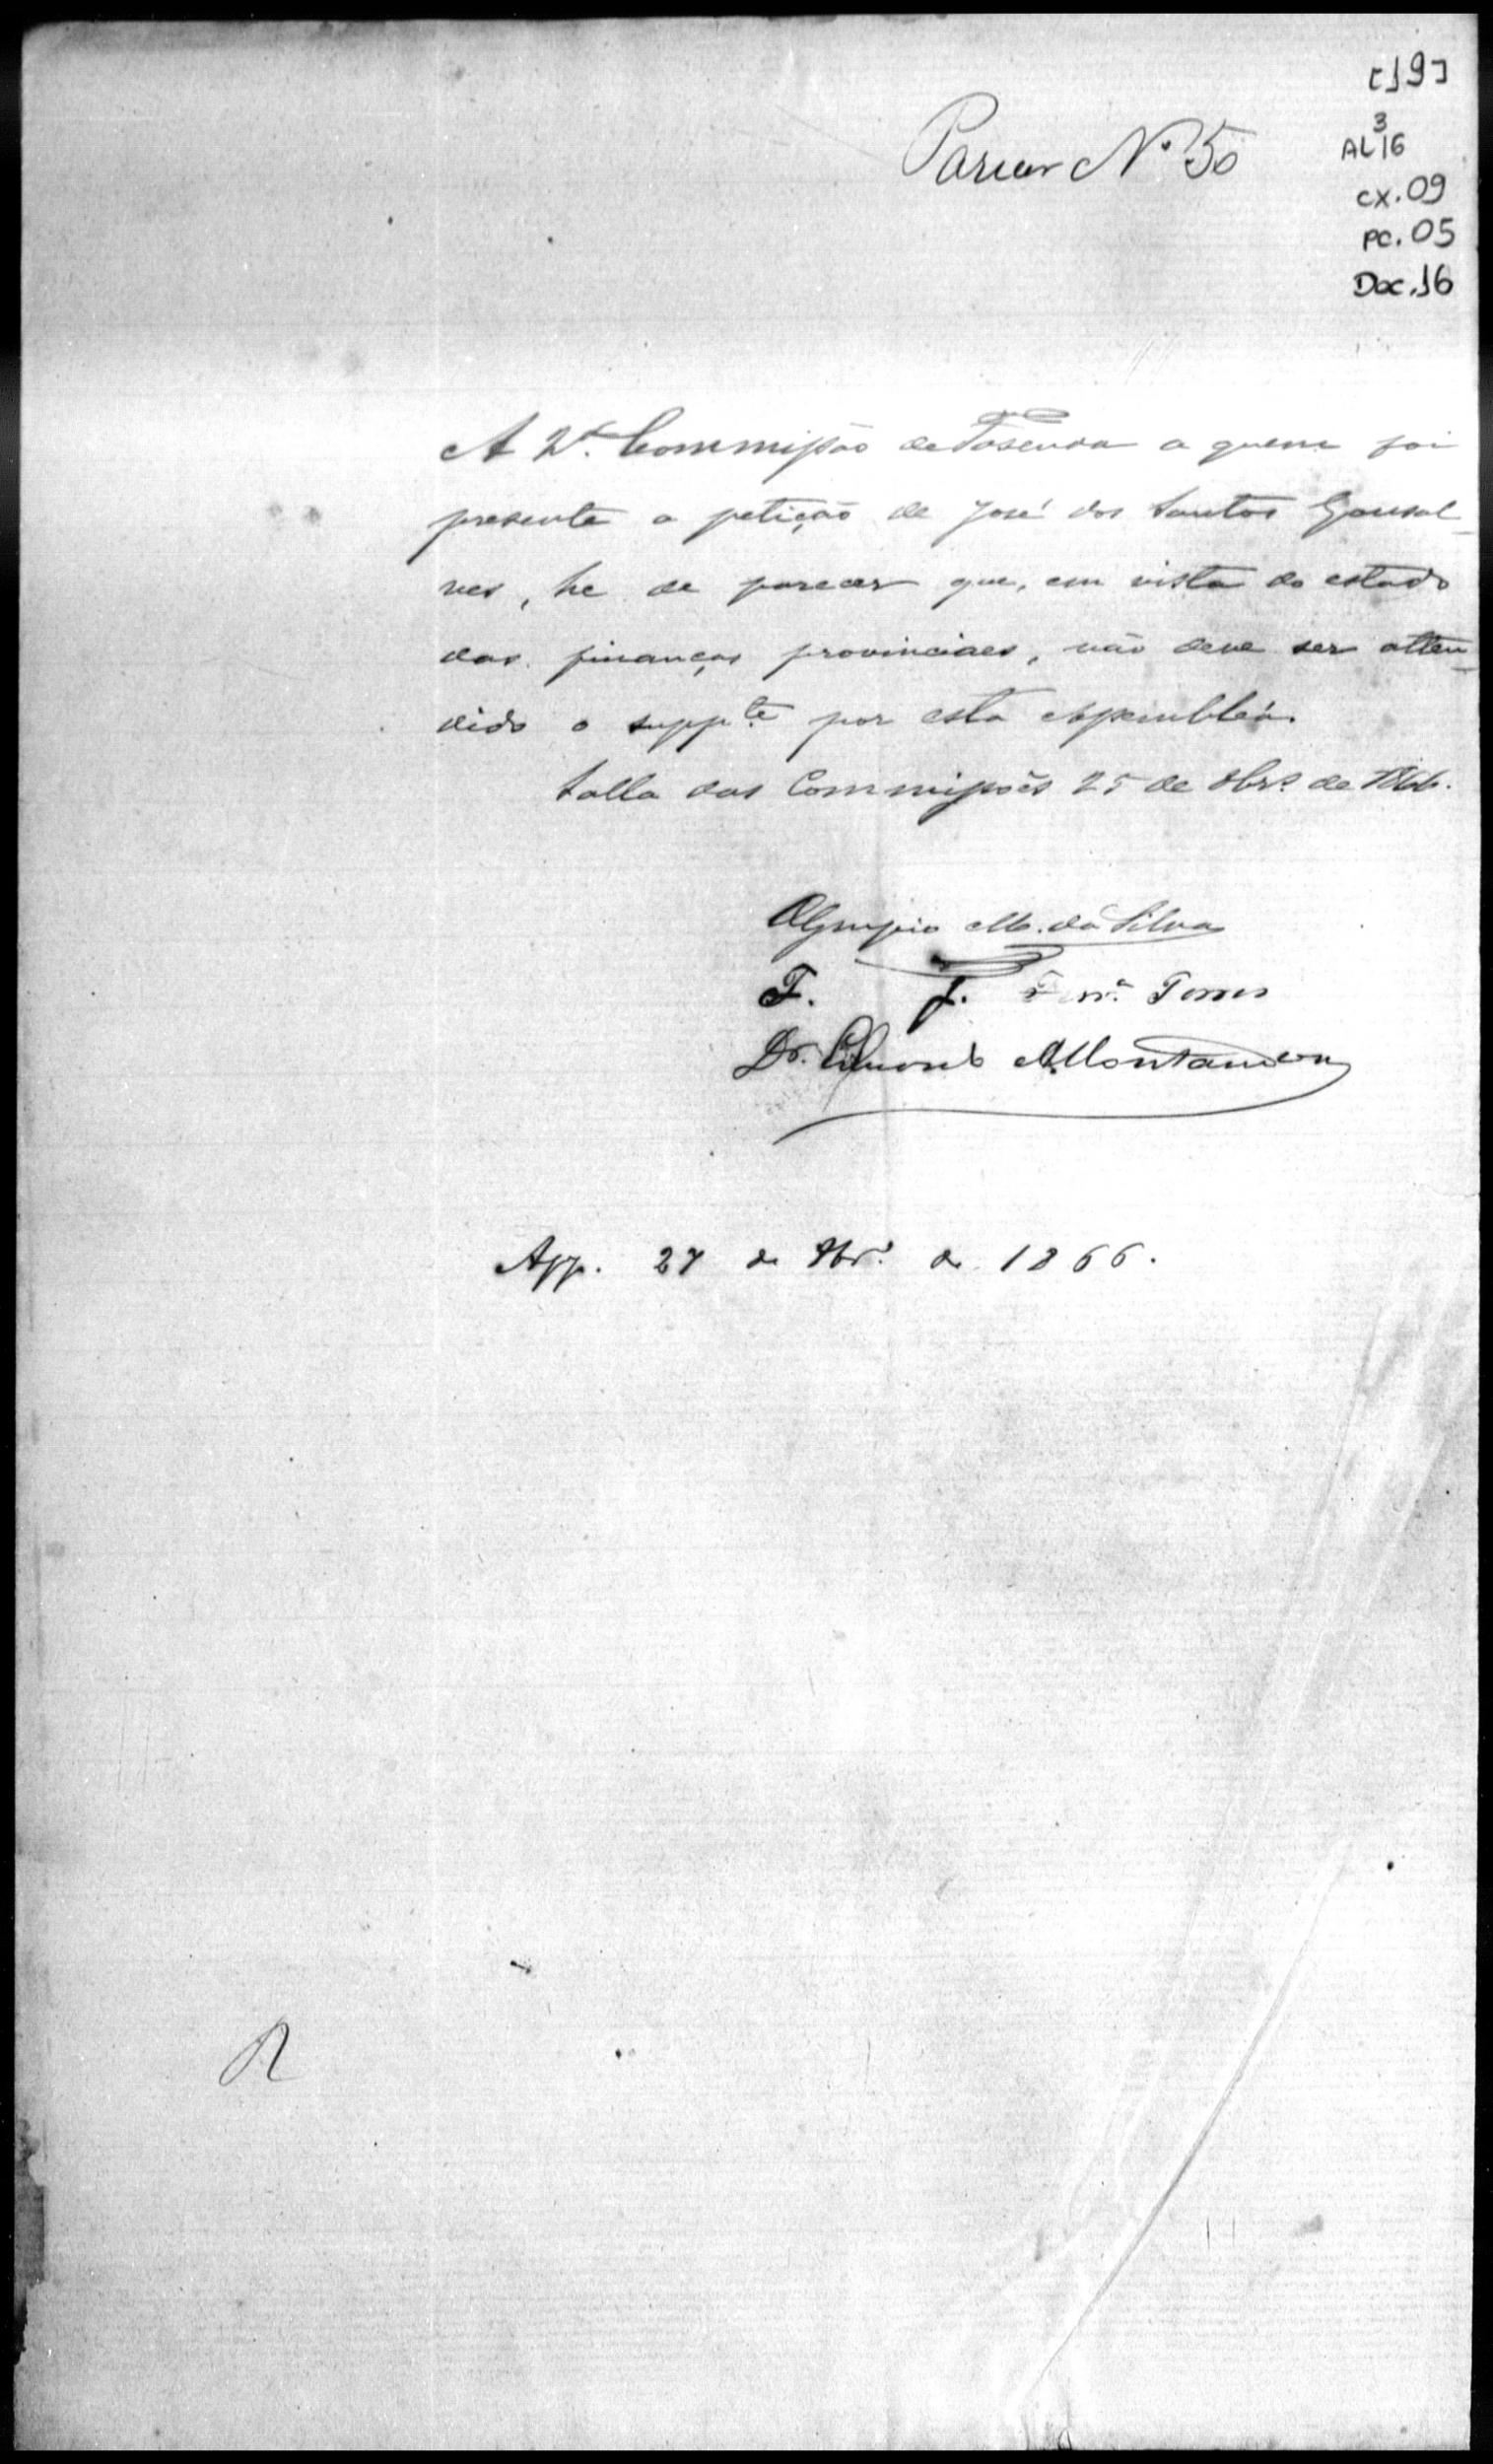 [19]
AL 3 16
cx. 09
pc. 05
Doc. 16
Parecer Nº 50
A 2ª Commissão de Fasenda a quem foi
presente a petição de José dos Santos Gonsal_
ves, he de parecer que, em vista do estado
das finanças provinciaes, não deve ser atten_
dido o suppte por esta Assembléa.
Salla das Commissões 25 de 9br.º de 1866.
Olympio M. da Silva
F. J. Ferrª Torres
Dr. Montandon
App. 27 de 9br.º de 1866.
R